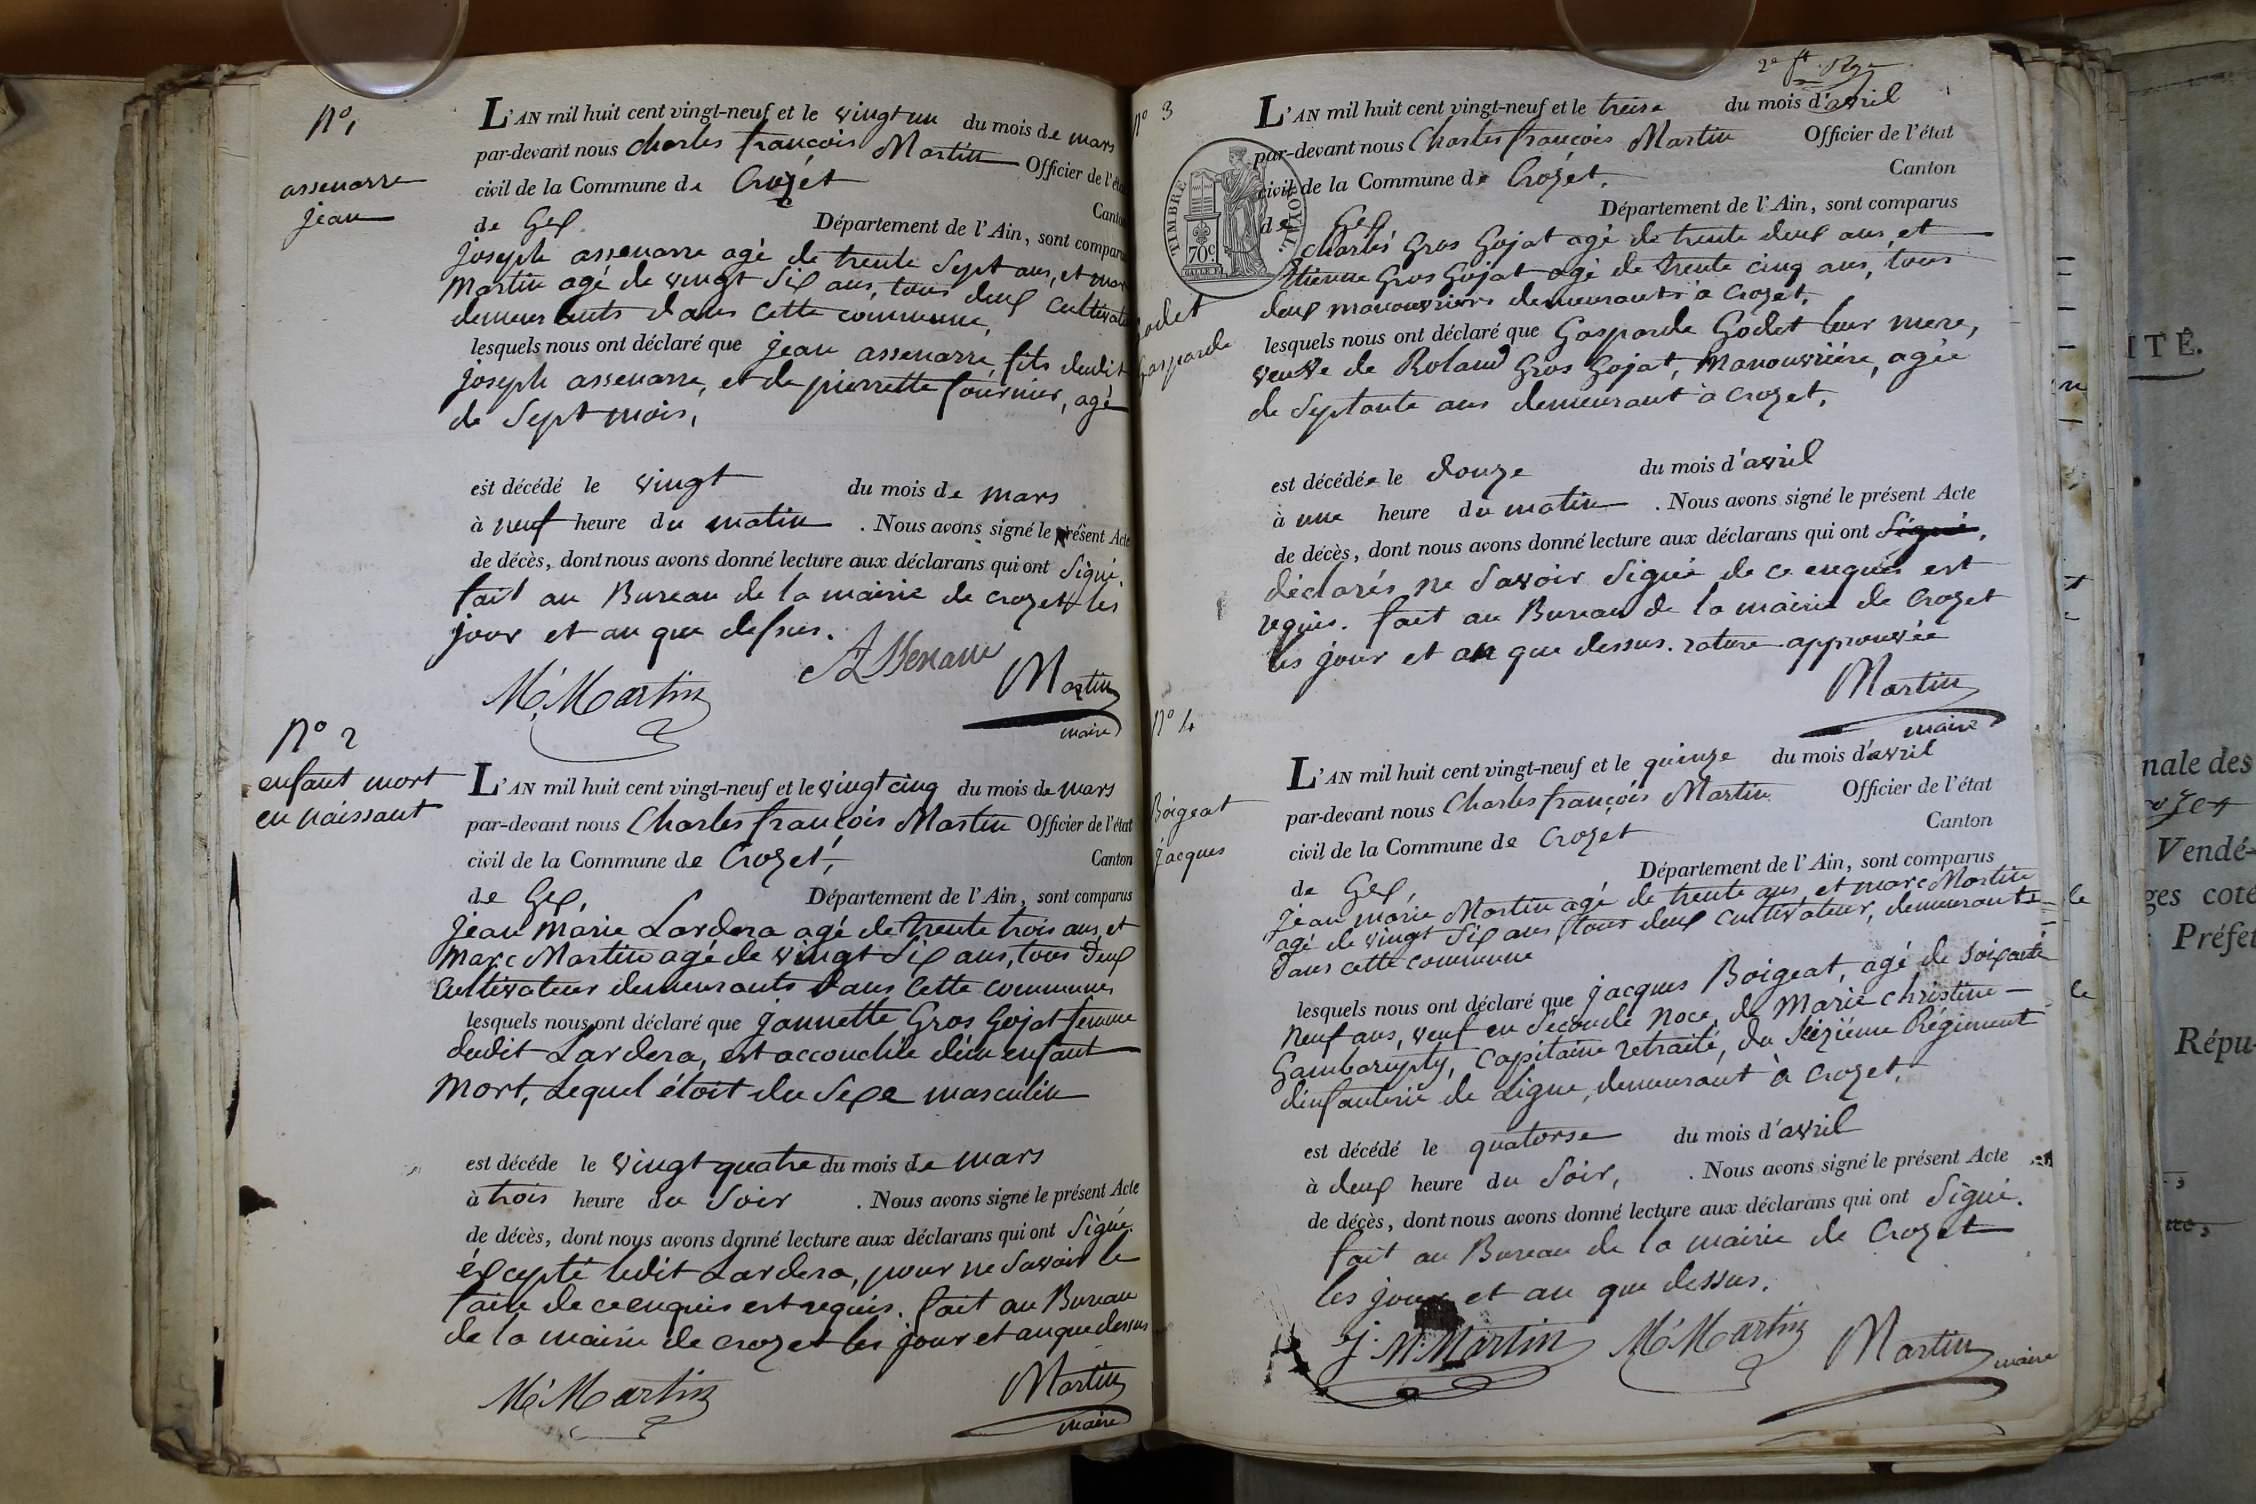 N° 1
assenarre
jean
L'AN mil huit cent vingt-neuf et le vingt un du mois de mars
par-devant nous Charles françois Martin Officier de l'éta
civil de la Commune de Crozet Canton
de Gex Département de l'Ain, sont compar
joseph assenarre agé de trente Sept ans, et mar
Martin agé de vingt Six ans, tous deux Cultivate
demeurants dans Cette commune,
lesquels nous ont déclaré que jean assenarre, fils dudit
joseph assenarre, et de pierrette fournier, agé
de Sept mois,
est décédé le vingt du mois de mars
à neuf heure du matin . Nous avons signé le présent Acte
de décès, dont nous avons donné lecture aux déclarans qui ont Signé.
fait au Bureau de la mairie de crozet les
jour et an que dessus.
Mc Martin Assenarre Martin
maire
N° 2
enfant mort
en naissant
L'AN mil huit cent vingt-neuf et le vingt cinq du mois de mars
par-devant nous Charles françois Martin Officier de l'état
civil de la Commune de Crozet, Canton
de Gex, Département de l'Ain, sont comparus
jean Marie Lardera agé de trente trois ans, et
Marc Martin agé de vingt Six ans, tous Deux
Cultivateur demeurants Dans Cette commune,
lesquels nous ont déclaré que jannette Gros Gojat femme
dudit Lardera, est accouchée d'un enfant
mort, Lequel étoit du Sexe masculin
est décédé le vingt quatre du mois de mars
à trois heure du Soir . Nous avons signé le présent Acte
de décès, dont nous avons donné lecture aux déclarans qui ont Signé.
éxcepté ledit Lardera, pour ne Savoir le
faire de ce enquis est requis. fait au Bureau
de la mairie de crozet les jour et an que dessus
Mc Martin Martin
maire
N° 3
odet
Gasparde
L'AN mil huit cent vingt-neuf et le treise du mois d'avril
par-devant nous Charles françois Martin Officier de l'état
civil de la Commune de Crozet, Canton
de Gex Département de l'Ain, sont comparus
TIMBRE ROYAL.
70c
charles Gros Gojat agé de trente deux ans, et
Etienne Gros Gojat agé de trente cinq ans, tous
deux manouvriers demeurants à Crozet,
lesquels nous ont déclaré que Gasparde Godet leur mere,
veuve de Roland Gros Gojat, Manouvrière, agée
de Septante ans demeurant à crozet,
est décédée le douze du mois d'avril
à une heure du matin . Nous avons signé le présent Acte
de décès, dont nous avons donné lecture aux déclarans qui ont Signé,
déclarés ne Savoir Signé de ce enquis est
requis. fait au Bureau de la mairie de Crozet
les jour et an que dessus. rature approuvée
Martin
maire
N° 4
Boigeat
jacques
L'AN mil huit cent vingt-neuf et le quinze du mois d'avril
par-devant nous Charles françois Martin Officier de l'état
civil de la Commune de Crozet Canton
de Gex, Département de l'Ain, sont comparus
jean marie Martin agé de trente ans, et marc Martin
agé de vingt Six ans, tous deux cultivateur, demeurants
Dans cette commune
lesquels nous ont déclaré que jacques Boigeat, agé de soixante
neuf ans, veuf en Seconde Noce, de Marie christine
Capitaine retraité, du Seizième Régiment
d'infanterie de Ligne, demeurant à Crozet,
est décédé le quatorse du mois d'avril
à deux heure du Soir, . Nous avons signé le présent Acte
de décès, dont nous avons donné lecture aux déclarans qui ont Signé.
fait au Bureau de la mairie de Crozet
les jour et an que dessus.
J. M. Martin Mc Martin Martin maire
ITÉ.
nale des
Vendé-
ges coté
Préfet
Répu-